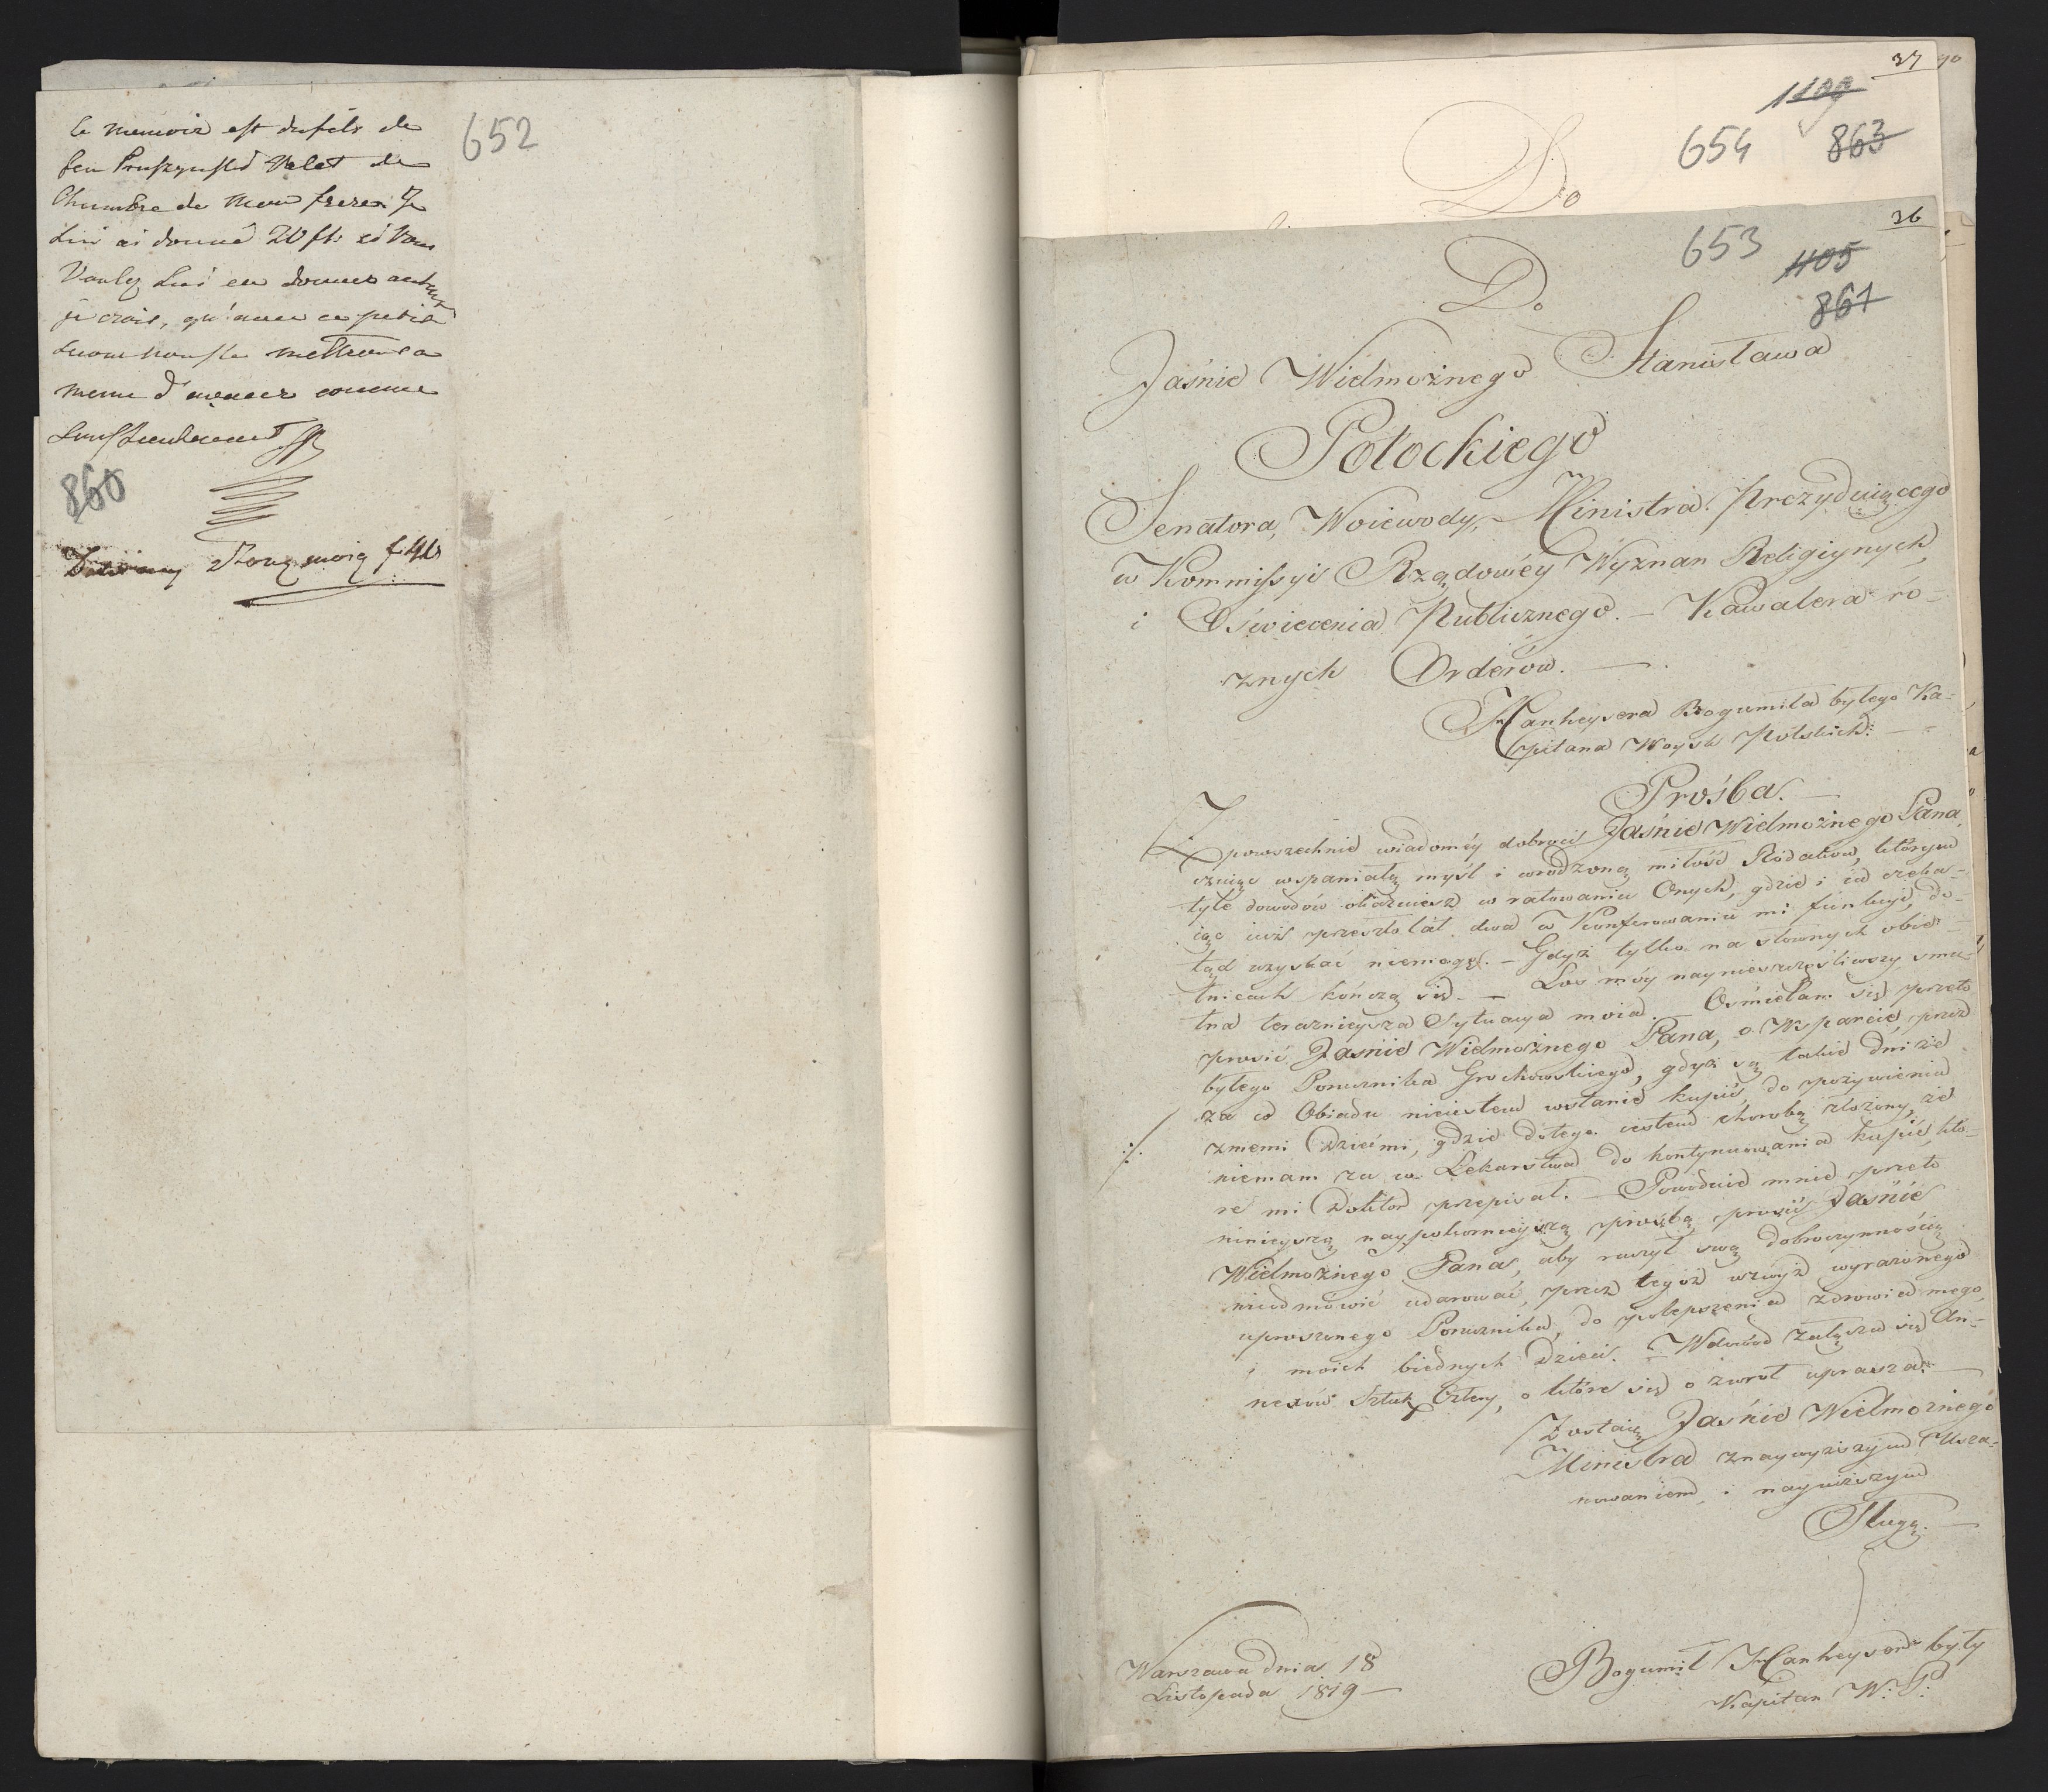 le memoire est du fils de
feu Pruszynski Valet de
Chambre de mon frere. Je
Lui ai donné 20 fl: si Vous
Voulez Lui en donner autant
je crois, qu'avec ce petit
meme d'avancer comme
652
860
37
1100
654
863
Do
36
653
1105
861
Do
Jaśnie Wielmożnego Stanisława
Potockiego
Senatora, Woiewody, Ministra Prezyduiącego
w Kommissyi Rządowéy Wyznań Religiynych,
i Oświecenia Publicznego. – Kawalera ró-
żnych Orderów. –
Hanheysera Bogumiła byłego Ka-
pitana Woysk Polskich: –
Prośba. –
Z powszechnie wiadoméy dobroci Jaśnie Wielmożnego Pana,
czuiąc wspaniałą myśl i wrodzoną miłość Rodaków, którym
tyle dowodów okazuiesz w ratowaniu Onych, gdzie i ia czeka-
iąc iuż przeszło lat dwa w Konferowaniu mi funkcyi, do-
tąd uzyskać niemogę. – Gdyż tylko na słownych obie-
tnicach kończą się. – Los móy naynieszczęśliwszy smu-
tna teraznieysza Sytuacya moia. Ośmielam się przeto
prosić Jaśnie Wielmożnego Pana, o Wsparcie, przez
byłego Porucznika Grochowskiego, gdyż są takie dni że
za co Obiadu nieiestem wstanie kupić, do pożywienia
zmemi Dziećmi, gdzie dotego iestem chorobą złożony, że
niemam za co Lekarstwa do kontynuowania kupić, któ-
re mi Doktor przepisał. – Powoduie mnie przeto
ninieyszą naypokornieyszą prośbą prosić Jaśnie
Wielmożnego Pana, aby raczył swą dobroczynnością
nieodmówić udarować, przez tegoż wzwyż wyrażonego
uproszonego Porucznika, do polepszenia zdrowia mego,
i moich biednych dzieci. – Wdowód załącza się An-
nexów Sztuk Cztery, o które się o zwrot uprasza. –
Zostaię Jaśnie Wielmożnego
Ministra znaywyższym Usza-
nowaniem, i nayniższym
Sługą. –
Warszawa dnia 18
Listopada 1819 –
Bogumił Hanheyser były
Kapitan W: P: